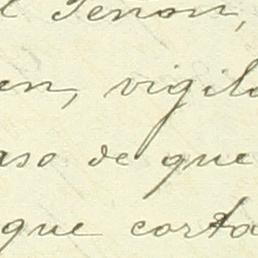 l Peñon,
en, vigila
aso de que
que corta